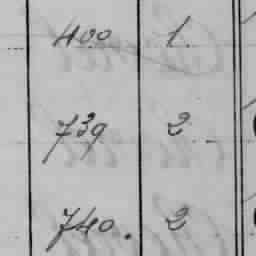 400 1.
739 2
740. 2